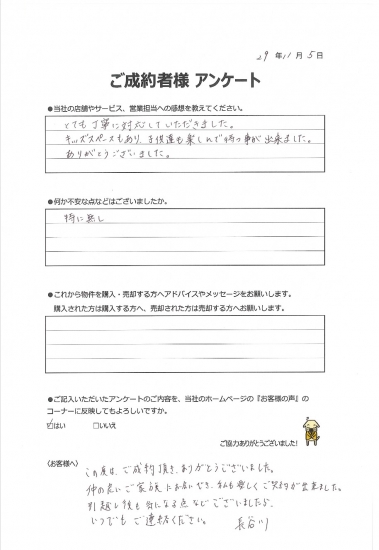 29 年 11 月 5 日
ご成約者様 アンケート
●当社の店舗やサービス、営業担当への感想を教えてください。
とても丁寧に対応していただきました。
キッズスペースもあり、子供達も楽しんで待つ事が出来ました。
ありがとうございました。
●何か不安な点などはございましたか。
特に無し
●これから物件を購入・売却する方へアドバイスやメッセージをお願いします。
購入された方は購入する方へ、売却された方は売却する方へお願いします。
●ご記入いただいたアンケートのご内容を、当社のホームページの『お客様の声』の
コーナーに反映してもよろしいですか。
☑はい □いいえ
ご協力ありがとうございました!
〈お客様へ〉
この度は、ご成約頂き、ありがとうございました。
仲の良いご家族にお会いでき、私も楽しくご契約が出来ました。
引越し後も気になる点などございましたら、
いつでもご連絡ください。 長谷川